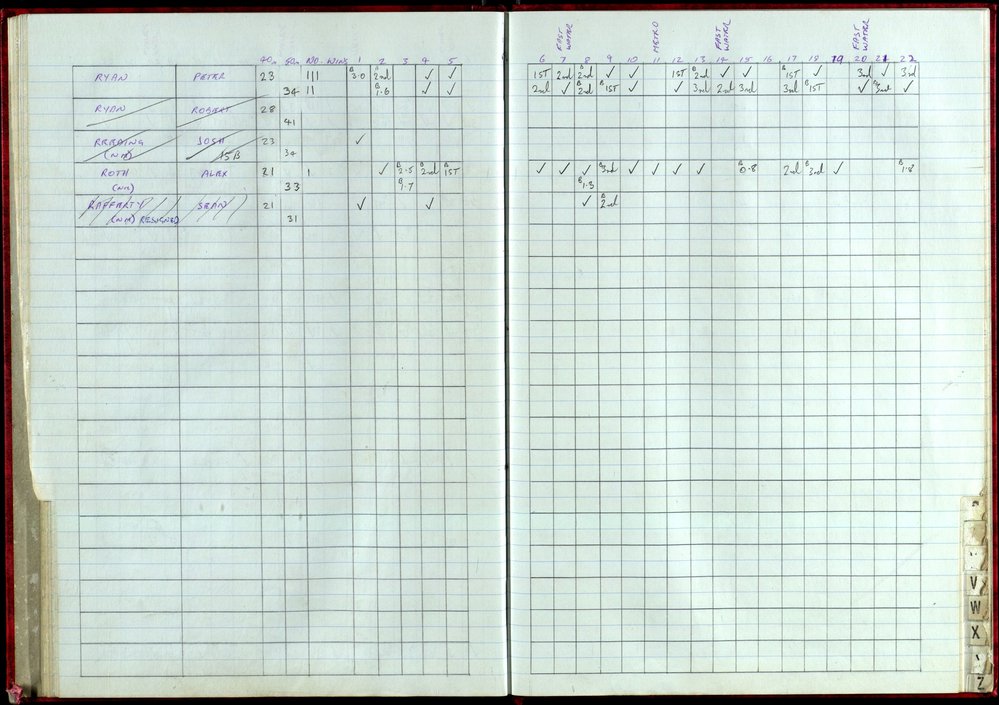 FAST WATER METRO FAST WATER FAST WATER
40m 60m NO. WINS 1 2 3 4 5 6 7 8 9 10 11 12 13 14 15 16 17 18 19 20 21 22
RYAN PETER 23 III B 3.0 B 2nd ✓ ✓ 1ST 2nd B 2nd ✓ ✓ 1ST B 2nd ✓ ✓ B 1ST ✓ 3rd ✓ 3rd
34 II B 1.6 ✓ ✓ 2nd ✓ B 2nd B 1ST ✓ ✓ 3rd 2nd 3rd 3rd B 1ST ✓ B 3rd ✓
RYAN ROBERT 28
41
JOSH 23 ✓
(NM) 15B 34
ROTH ALEX 21 I ✓ B 2.5 B 2nd B 1ST ✓ ✓ ✓ B 3rd ✓ ✓ ✓ ✓ B 0.8 2nd B 3rd ✓ B 1.8
(NM) 33 B 1.7 B 1.3
RAFFERTY SEAN 21 ✓ ✓ ✓ B 2nd
(NM) RESIGNED 31
V
W
X
Z